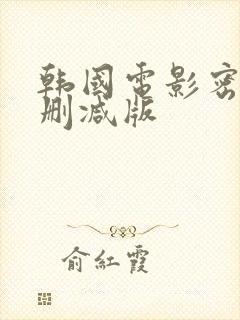 韩國電影密
删减版
俞紅霞